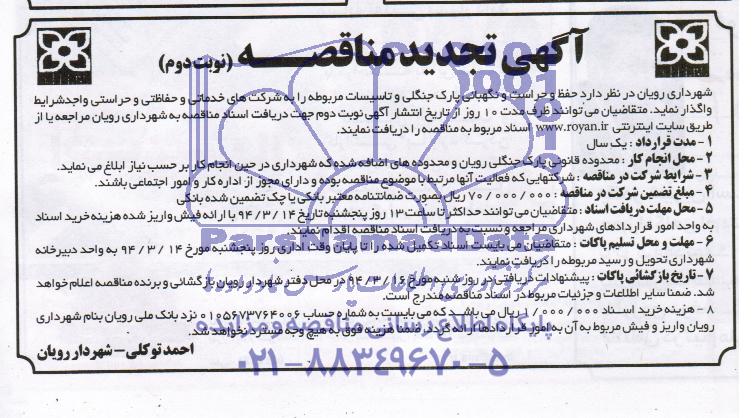 آگهی تجدید مناقصه (نوبت دوم)
شهرداری رویان در نظر دارد حفظ و حراست و نگهبانی پارک جنگلی و تاسیسات مربوطه را به شرکت های خدماتی و حفاظتی و حراستی واجدشرایط
واگذار نماید. متقاضیان می توانند ظرف مدت ۱۰ روز از تاریخ انتشار آگهی نوبت دوم جهت دریافت اسناد مناقصه به شهرداری رویان مراجعه یا از
طریق سایت اینترنتی www.royan.ir اسناد مربوط به مناقصه را دریافت نمایند.
۱ - مدت قرارداد : یک سال
۲ - محل انجام کار : محدوده قانونی پارک جنگلی رویان و محدوده های اضافه شده که شهرداری در حین انجام کار بر حسب نیاز ابلاغ می نماید.
۳ - شرایط شرکت در مناقصه : شرکتهایی که فعالیت آنها مرتبط با موضوع مناقصه بوده و دارای مجوز از اداره کار و امور اجتماعی باشند.
۴ - مبلغ تضمین شرکت در مناقصه : ۷۰/۰۰۰/۰۰۰ ریال بصورت ضمانتنامه معتبر بانکی یا چک تضمین شده بانکی
۵ - محل مهلت دریافت اسناد : متقاضیان می توانند حداکثر تا ساعت ۱۳ روز پنجشنبه تاریخ ۹۴/۳/۱۴ با ارائه فیش واریز شده هزینه خرید اسناد
به واحد امور قراردادهای شهرداری مراجعه و نسبت به دریافت اسناد مناقصه اقدام نمایند.
۶ - مهلت و محل تسلیم پاکات : متقاضیان می بایست اسناد تکمیل شده را تا پایان وقت اداری روز پنجشنبه مورخ ۹۴/۳/۱۴ به واحد دبیرخانه
شهرداری تحویل و رسید مربوطه را دریافت نمایند.
۷ - تاریخ بازگشائی پاکات : پیشنهادات دریافتی در روز شنبه مورخ ۹۴/۳/۱۶ در محل دفتر شهردار رویان بازگشائی و برنده مناقصه اعلام خواهد
شد. ضمنا سایر اطلاعات و جزئیات مربوط در اسناد مناقصه مندرج است.
۸ - هزینه خرید اسناد ۱/۰۰۰/۰۰۰ ریال می باشد که می بایست به شماره حساب ۰۱۰۵۶۷۳۷۶۴۰۰۶ نزد بانک ملی رویان بنام شهرداری
رویان واریز و فیش مربوط به آن به امور قراردادها ارائه گردد. ضمنا هزینه فوق به هیچ وجه مسترد نخواهد شد.
احمد توکلی - شهردار رویان
پایگاه اطلاع رسانی مناقصه و مزایده
۰۲۱-۸۸۳۴۹۶۷۰-۵